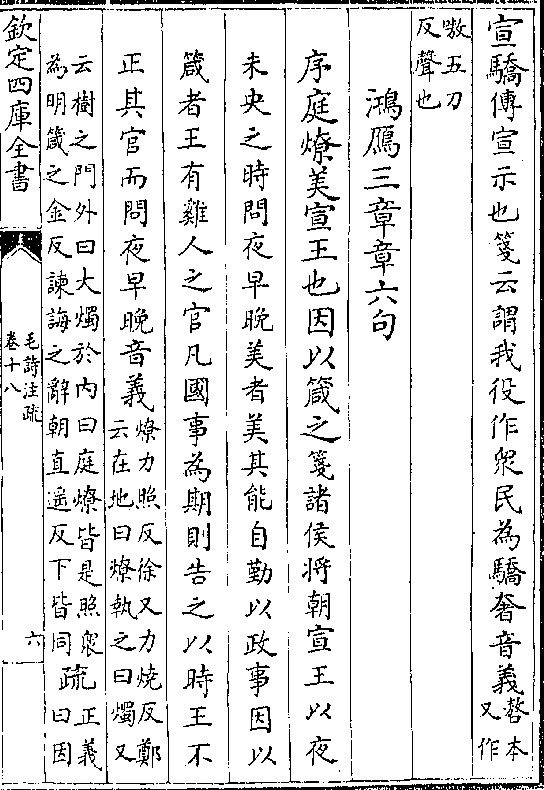 宣驕傳宣示也箋云謂我役作衆民為驕奢音義嗸本
又作
嗷五刀
反聲也
鴻鴈三章章六句
序庭燎美宣王也因以箴之箋諸侯將朝宣王以夜
未央之時問夜早晚美者美其能自勤以政事因以
箴者王有雞人之官凡國事為期則告之以時王不
正其官而問夜早晚音義燎力照反徐又力燒反鄭
云在地曰燎執之曰燭又
云樹之門外曰大燭於內曰庭燎皆是照衆
為明箴之金反諫誨之辭朝直遥反下皆同疏正義
曰因
欽定四庫全書
毛詩注疏
卷十八
六